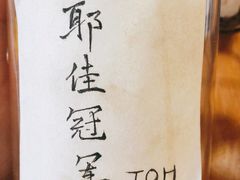 耶佳冠军
JOH